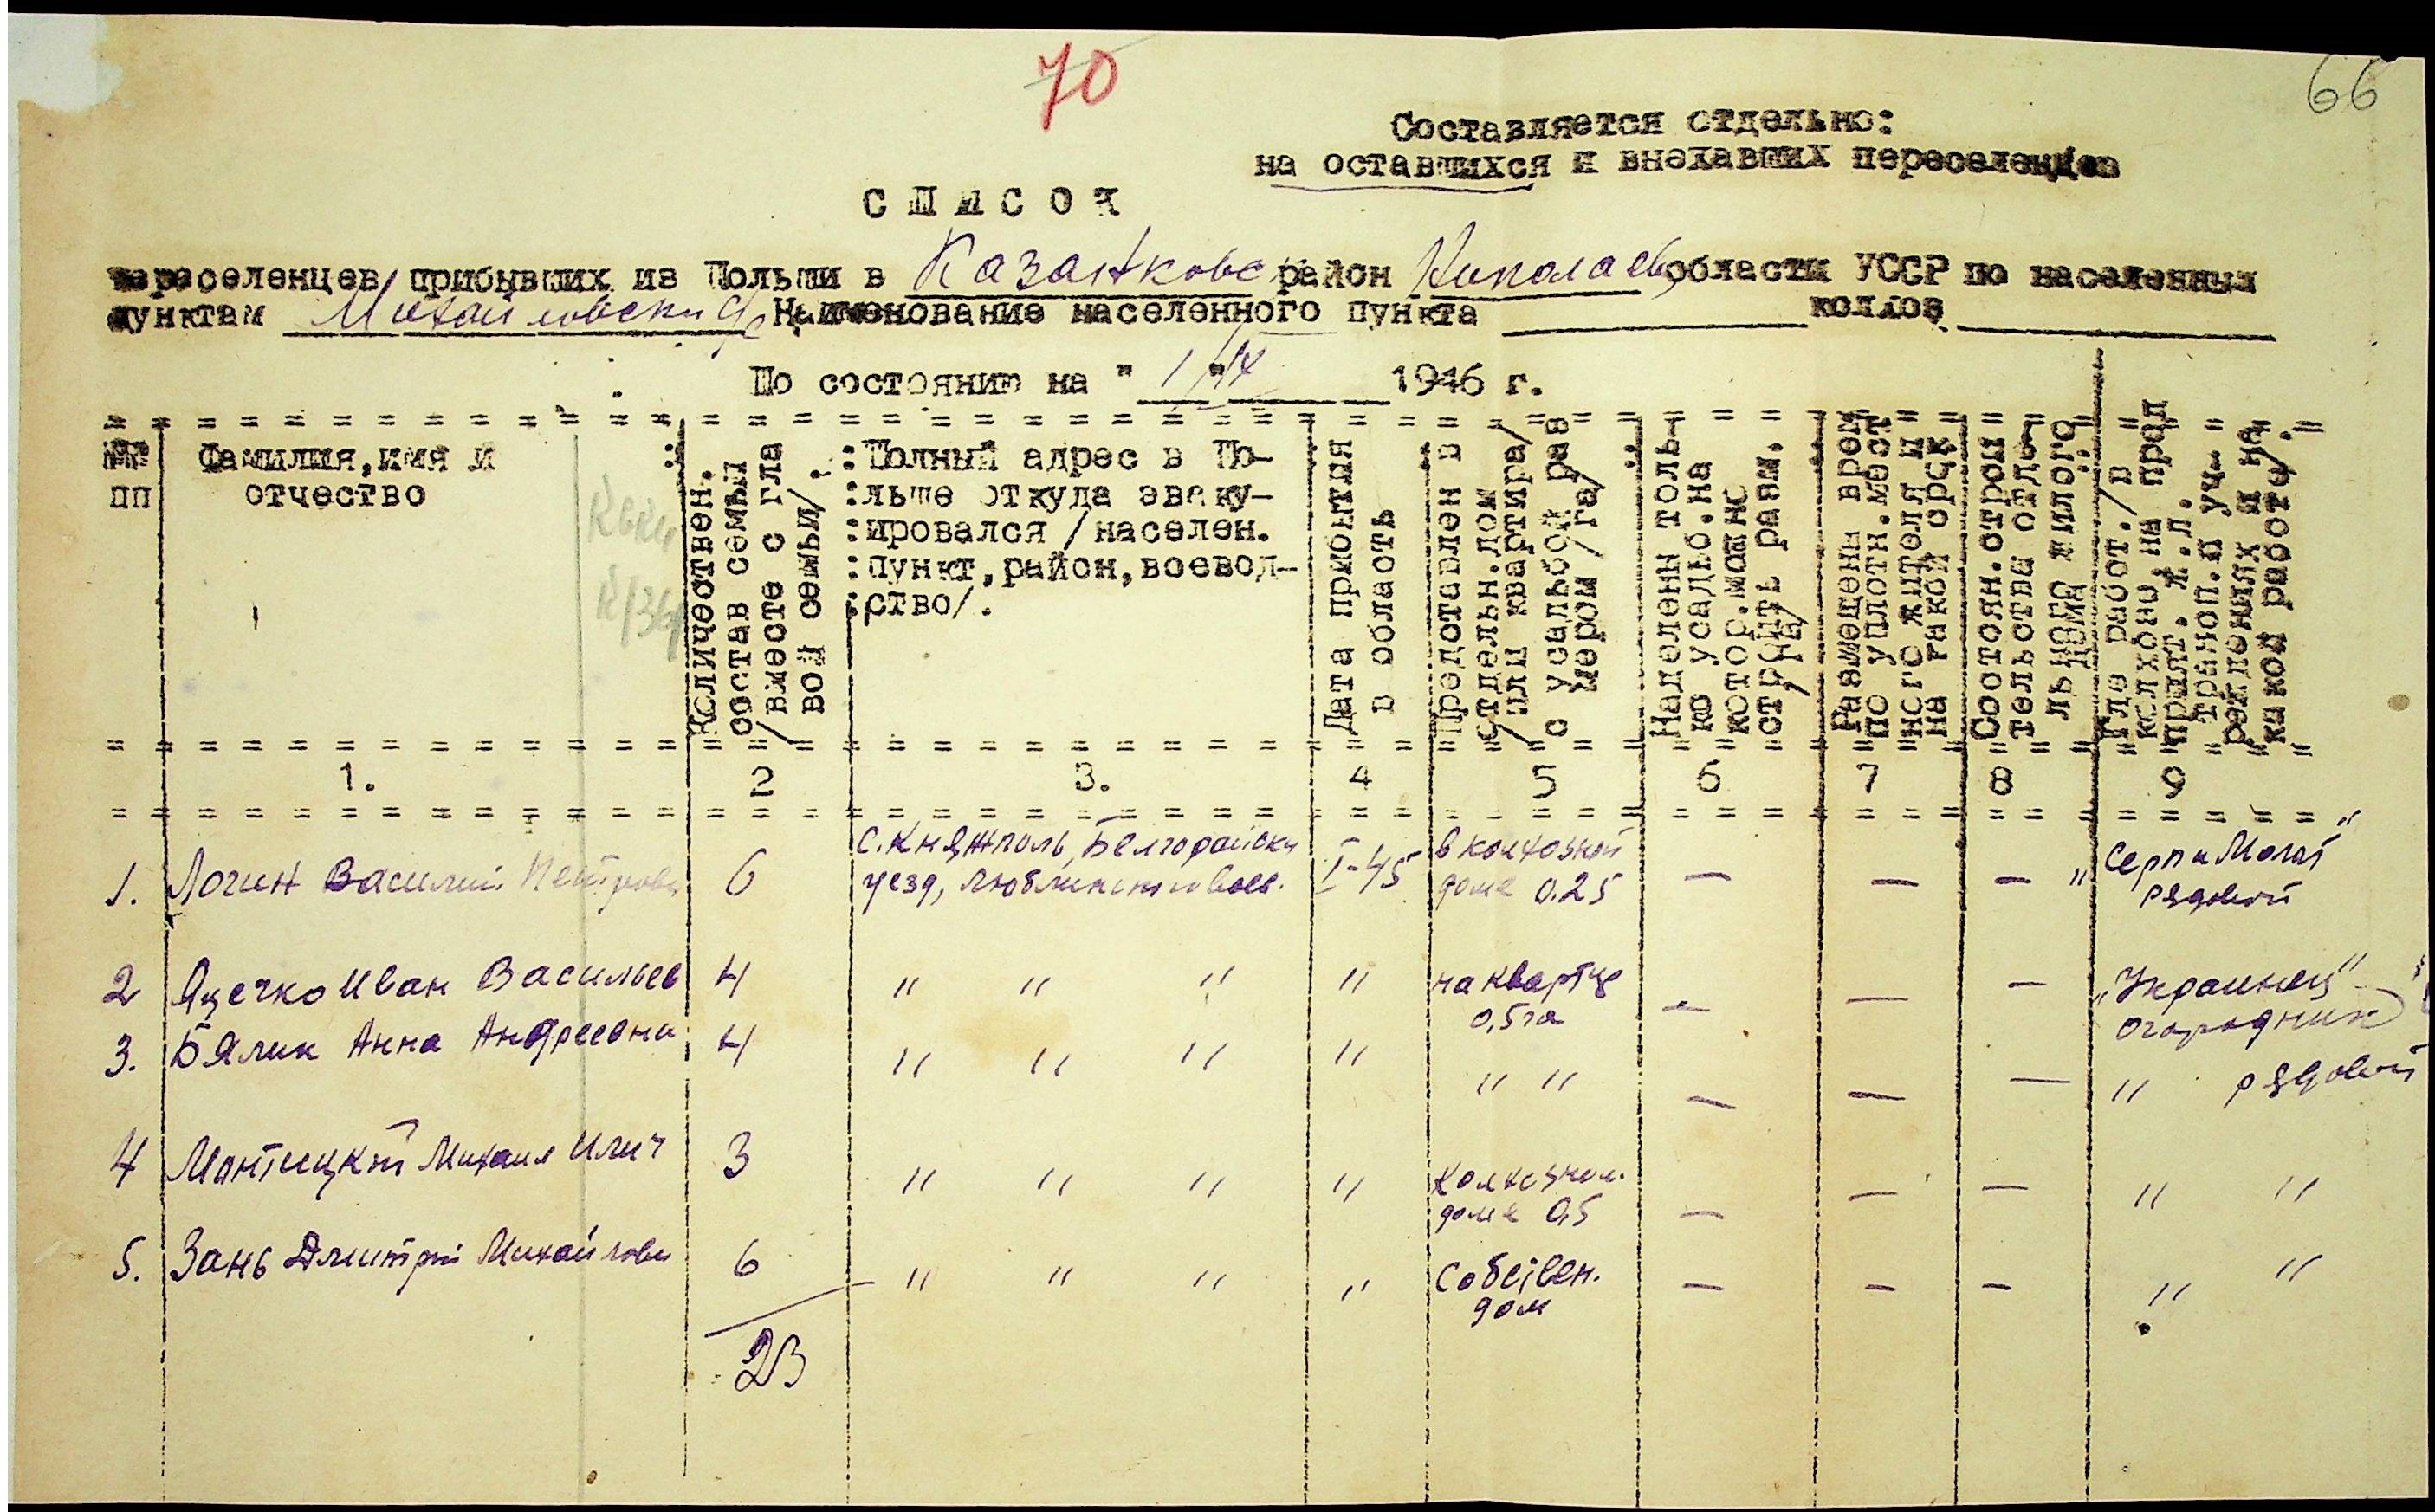 70
66
Составляется отдельно:
на оставшихся и выехавших переселенцев
СПИСОК
переселенцев прибывших из Польши в Казанковс район Николаев области УССР по населенных
пунктам Михайловский Наименование населенного пункта колхоз
По состоянию на " 1 " 1946 г.
№№ пп
Фамилия, имя и
отчество
Количествен.
состав семьи
/вместе с гла
вой семьи/.
Полный адрес в По-
льше откуда эваку-
ировался /населен.
пункт, район, воевод-
ство/.
Дата прибытия
в область
Предоставлен в
отдельн.дом
/или квартира/
с усадьбой раз
мером /га/
Наделены толь-
ко усадьб. на
котор. можно
строить разм.
/га/
Размещены врем
по уплотн.мест
ного жителя и
на какой срок
Состоян.строи
тельства отде
льного жилого
дома
Где работ./в
колхозе, на пред
прият. ж.д.
трансп. и уч-
реждениях и на
какой работе/.
1. 2 3. 4 5 6 7 8 9
1. Логин Василий Петрови 6 с. Княжполь, Белгорайски уезд, Люблинского воев. I-45 в колхозном доме 0.25 — — — „Серп и Молот" рядовой
2 Яцечко Иван Васильев 4 " " " " на квартире 0,5 га — — — „Украинец" огородник
3. Бялик Анна Андреевна 4 " " " " " " — — — " рядовой
4 Монтицкий Михаил Илич 3 " " " " Колхозном доме 0,5 — — — " "
5. Зань Дмитрий Михайлови 6 " " " " Собствен. дом — — — " "
23